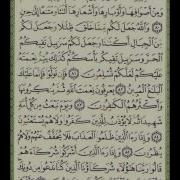 وَمِنْ أَصْوَافِهَا وَأَوْبَارِهَا وَأَشْعَارِهَا أَثَٰثًا وَمَتَٰعًا إِلَىٰ حِينٍ
٨٠ وَٱللَّهُ جَعَلَ لَكُم مِّمَّا خَلَقَ ظِلَٰلًا وَجَعَلَ لَكُم
مِّنَ ٱلْجِبَالِ أَكْنَٰنًا وَجَعَلَ لَكُمْ سَرَٰبِيلَ تَقِيكُمُ
ٱلْحَرَّ وَسَرَٰبِيلَ تَقِيكُم بَأْسَكُمْ كَذَٰلِكَ يُتِمُّ نِعْمَتَهُۥ
عَلَيْكُمْ لَعَلَّكُمْ تُسْلِمُونَ ٨١ فَإِن تَوَلَّوْا۟ فَإِنَّمَا عَلَيْكَ
ٱلْبَلَٰغُ ٱلْمُبِينُ ٨٢ يَعْرِفُونَ نِعْمَتَ ٱللَّهِ ثُمَّ يُنكِرُونَهَا
وَأَكْثَرُهُمُ ٱلْكَٰفِرُونَ ٨٣ وَيَوْمَ نَبْعَثُ مِن كُلِّ أُمَّةٍ
شَهِيدًا ثُمَّ لَا يُؤْذَنُ لِلَّذِينَ كَفَرُوا۟ وَلَا هُمْ يُسْتَعْتَبُونَ
٨٤ وَإِذَا رَءَا ٱلَّذِينَ ظَلَمُوا۟ ٱلْعَذَابَ فَلَا يُخَفَّفُ عَنْهُمْ وَلَا هُمْ
يُنظَرُونَ ٨٥ وَإِذَا رَءَا ٱلَّذِينَ أَشْرَكُوا۟ شُرَكَآءَهُمْ
قَالُوا۟ رَبَّنَا هَٰٓؤُلَآءِ شُرَكَآؤُنَا ٱلَّذِينَ كُنَّا نَدْعُوا۟ مِن دُونِكَ